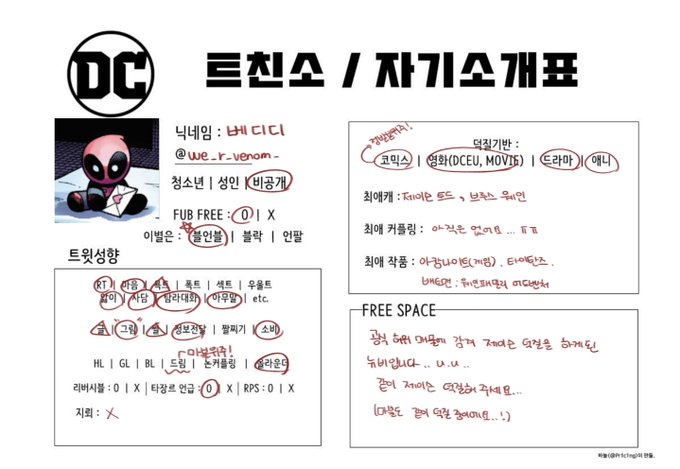 DC
트친소 / 자기소개표
닉네임 : 베디디
@we_r_venom_
청소년 | 성인 | 비공개
FUB FREE : O | X
이별은 : 블언블 | 블락 | 언팔
트윗성향
RT | 마음 | 욕트 | 폭트 | 섹트 | 우울트
앓이 | 사담 | 탐라대화 | 아무말 | etc.
글 | "그림" | 썰 | 정보전달 | 짤찌기 | 소비
마블위주!
HL | GL | BL | 드림 | 논커플링 | 올라운더
리버시블 : O | X | 타장르 언급 : O | X | RPS : O | X
지뢰 : X
덕질기반 :
코믹스 | 영화(DCEU, MOVIE) | 드라마 | 애니
최애캐 : 제이슨 토드, 브루스 웨인
최애 커플링 : 아직은 없어요... ㅠㅠ
최애 작품 : 아캄나이트(게임). 타이탄즈.
배트맨 : 웨인 패밀리 어드벤처
FREE SPACE
공식 허위 매물에 감겨 제이슨 덕질을 하게된
뉴비입니다.. u.u..
같이 제이슨 덕질해 주세요...
(마블도 같이 덕질 중이에요..!)
하늘(@Pr1c1ng)이 만듦.